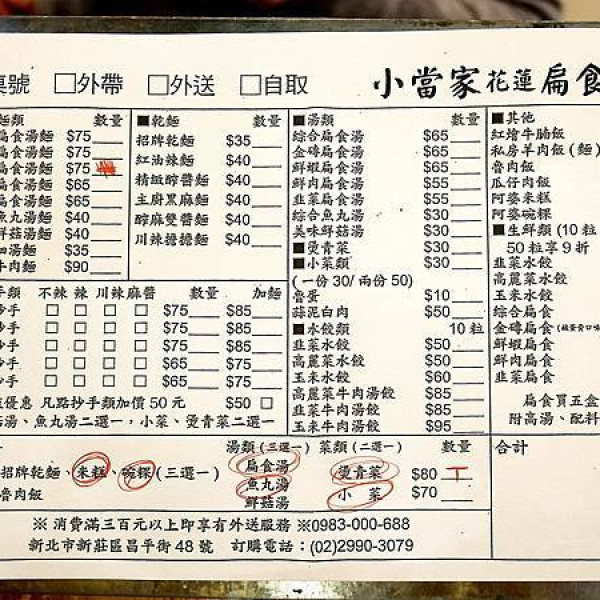 桌號 □外帶 □外送 □自取 小當家花蓮扁食
麵類 數量
扁食湯麵 $75
扁食湯麵 $75
扁食湯麵 $75
扁食湯麵 $65
扁食湯麵 $65
魚丸湯麵 $40
鮮菇湯麵 $40
湯麵 $35
牛肉麵 $90
■乾麵 數量
招牌乾麵 $35
紅油辣麵 $40
精緻醇醬麵 $40
主廚黑麻麵 $40
醇麻雙醬麵 $40
川辣擔擔麵 $40
■湯類 數量
綜合扁食湯 $65
金磚扁食湯 $65
鮮蝦扁食湯 $65
鮮肉扁食湯 $55
韭菜扁食湯 $55
綜合魚丸湯 $30
美味鮮菇湯 $30
■燙青菜 $30
■小菜類 $30
(一份30/兩份50)
魯蛋 $10
蒜泥白肉 $50
■水餃類 10粒
韭菜水餃 $50
高麗菜水餃 $50
玉米水餃 $60
高麗菜牛肉湯餃 $85
韭菜牛肉湯餃 $85
玉米牛肉湯餃 $95
■其他
紅燴牛腩飯
私房羊肉飯(麵)
魯肉飯
瓜仔肉飯
阿婆米糕
阿婆碗粿
■生鮮類(10粒
50粒享9折
韭菜水餃
高麗菜水餃
玉米水餃
綜合扁食
金磚扁食
鮮蝦扁食
鮮肉扁食
韭菜扁食
扁食買五盒
附高湯、配料
手類 不辣 辣 川辣 麻醬 數量 加麵
抄手 □ □ □ □ $75 $85
抄手 □ □ □ □ $75 $85
抄手 □ □ □ □ $75 $85
抄手 □ □ □ □ $65 $75
抄手 □ □ □ □ $65 $75
優惠 凡點抄手類加價50元 $50 □
菇湯、魚丸湯二選一,小菜、燙青菜二選一
湯類(三選一) 菜類(二選一) 數量
招牌乾麵、米糕、碗粿(三選一) 扁食湯 燙青菜 $80
魯肉飯 魚丸湯 小 菜 $70
鮮菇湯
合計
※消費滿三百元以上即享有外送服務※0983-000-688
新北市新莊區昌平街48號 訂購電話:(02)2990-3079